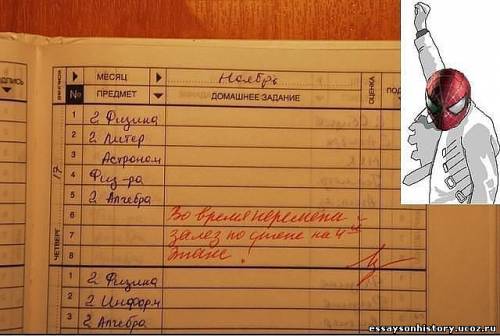 МЕСЯЦ Ноябрь
№ ПРЕДМЕТ ДОМАШНЕЕ ЗАДАНИЕ ОЦЕНКА
1 2 Физика
2 2 Литер
3 Астроном
4 Физ-ра
5 2 Алгебра
6 Во время перемены
7 залез по стене на 4ый
8 этаж!
17
ЧЕТВЕРГ
1 2 Физика
2 2 Информ
3 2 Алгебра
essaysonhistory.ucoz.ru